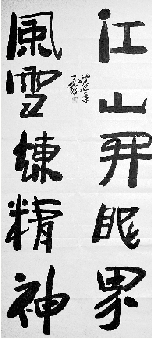 江山开眼界
風雪炼精神